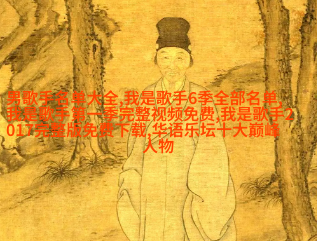 男歌手名单大全,我是歌手6季全部名单,
我是歌手第一季完整视频免费,我是歌手2
017完整版免费下载,华语乐坛十大巅峰
人物